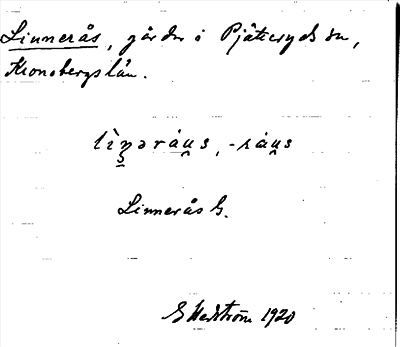 Linnerås, gårdar i Pjätteryds sn,
Kronobergs län.
lìnəráu̯s, -ráu̯s
Linnerås G.
G Hedström 1920